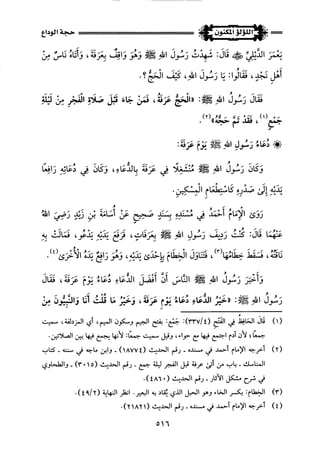 حجة الوداع
اللؤلؤ المكنون
يَعْمَرَ الدِّيْلِيِّ ﷺ قَالَ: شَهِدْتُ رَسُولَ اللهِ ﷺ وَهُوَ وَاقِفٌ بِعَرَفَةَ، وَأَتَاهُ نَاسٌ مِنْ
أَهْلِ نَجْدٍ، فَقَالُوا: يَا رَسُولَ اللهِ، كَيْفَ الْحَجُّ؟.
فَقَالَ رَسُولُ اللهِ ﷺ: «الْحَجُّ عَرَفَةُ، فَمَنْ جَاءَ قَبْلَ صَلَاةِ الْفَجْرِ مِنْ لَيْلَةِ
جَمْعٍ(١)، فَقَدْ تَمَّ حَجُّهُ»(٢).
* دُعَاءُ رَسُولِ اللهِ ﷺ يَوْمَ عَرَفَةَ:
وَكَانَ رَسُولُ اللهِ ﷺ مُنْشَغِلًا فِي عَرَفَةَ بِالدُّعَاءِ، وَكَانَ فِي دُعَائِهِ رَافِعًا
يَدَيْهِ إِلَى صَدْرِهِ كَاسْتِطْعَامِ الْمِسْكِينِ.
رَوَى الْإِمَامُ أَحْمَدُ فِي مُسْنَدِهِ بِسَنَدٍ صَحِيحٍ عَنْ أُسَامَةَ بْنِ زَيْدٍ رَضِيَ اللهُ
عَنْهُمَا قَالَ: كُنْتُ رَدِيفَ رَسُولِ اللهِ ﷺ بِعَرَفَاتٍ، فَرَفَعَ يَدَيْهِ يَدْعُو، فَمَالَتْ بِهِ
نَاقَتُهُ، فَسَقَطَ خِطَامُهَا(٣)، فَتَنَاوَلَ الْخِطَامَ بِإِحْدَى يَدَيْهِ، وَهُوَ رَافِعٌ يَدَهُ الْأُخْرَى(٤).
وَأَخْبَرَ رَسُولُ اللهِ ﷺ النَّاسَ أَنَّ أَفْضَلَ الدُّعَاءِ دُعَاءُ يَوْمِ عَرَفَةَ، فَقَالَ
رَسُولُ اللهِ ﷺ: «خَيْرُ الدُّعَاءِ دُعَاءُ يَوْمِ عَرَفَةَ، وَخَيْرُ مَا قُلْتُ أَنَا وَالنَّبِيُّونَ مِنْ
(١) قال الحافظ في الفتح (٣٣٧/٤): جمع: بفتح الجيم وسكون الميم، أي المزدلفة، سميت
جمعًا؛ لأن آدم اجتمع فيها مع حواء، وقيل سميت جمعًا: لأنها يجمع فيها بين الصلاتين.
(٢) أخرجه الإمام أحمد في مسنده ـ رقم الحديث (١٨٧٧٤) ـ وابن ماجه في سننه ـ كتاب
المناسك ـ باب من أتى عرفة قبل الفجر ليلة جمع ـ رقم الحديث (٣٠١٥) ـ والطحاوي
في شرح مشكل الآثار ـ رقم الحديث (٤٨٦٠).
(٣) الخِطام: بكسر الخاء وهو الحبل الذي يُقاد به البعير. انظر النهاية (٤٩/٢).
(٤) أخرجه الإمام أحمد في مسنده ـ رقم الحديث (٢١٨٢١).
٥١٦